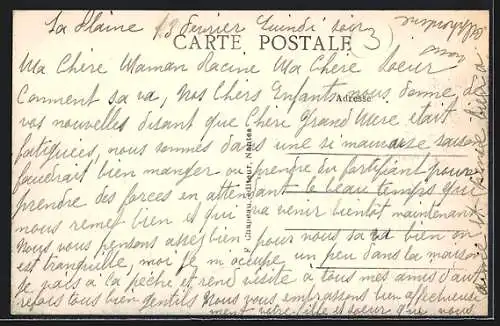 La Plaine 13 Fevrier Lundi soir
(3)
CARTE POSTALE
Adresse
F. Chapeau, éditeur, Nantes
Ma Chère Maman Racine Ma Chère Soeur
Comment sa va, Nos Chers Enfants nous donne de
vos nouvelles disant que Chère Grand Mère était
fatiguées, nous sommes dans une si mauvaise saison
faudrait bien manger ou prendre du fortifiant pour
prendre des forces en attendant le beau temps qui
nous remet bien et qui va venir bientôt maintenant
Nous vous pensons assez bien pour nous sa va bien on
est tranquille, moi je m occupe un peu dans la maison
je vais a la pêche et rend visite a tous mes amis d'au
tous bien gentils Nous vous embrassons bien affectueuse
ment votre fille et soeur qui vous